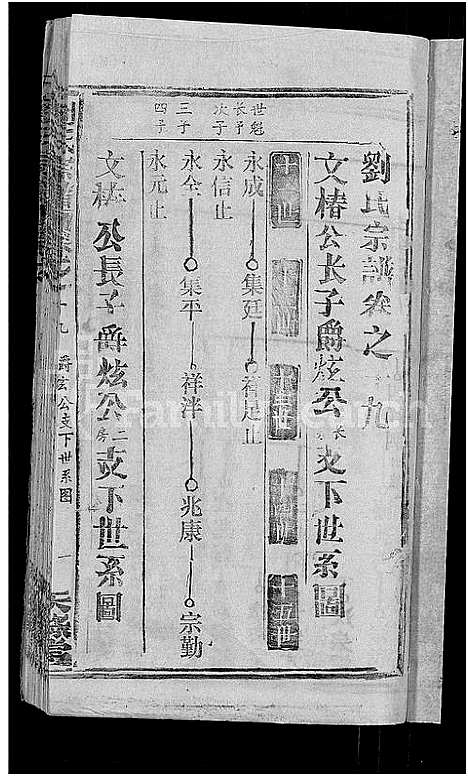 劉氏宗譜卷之十九
文椿公长子爵炫公長房支下世系圖
十一世
十二世
十三世
十四世
十五世
世魁长子
永成 集廷 祥足止
次子
永信止
三子
永全 集平 祥泮 兆康 宗勤
四子
永元止
文椿公長子爵炫公二房支下世系圖
爵炫公支下世系图
一